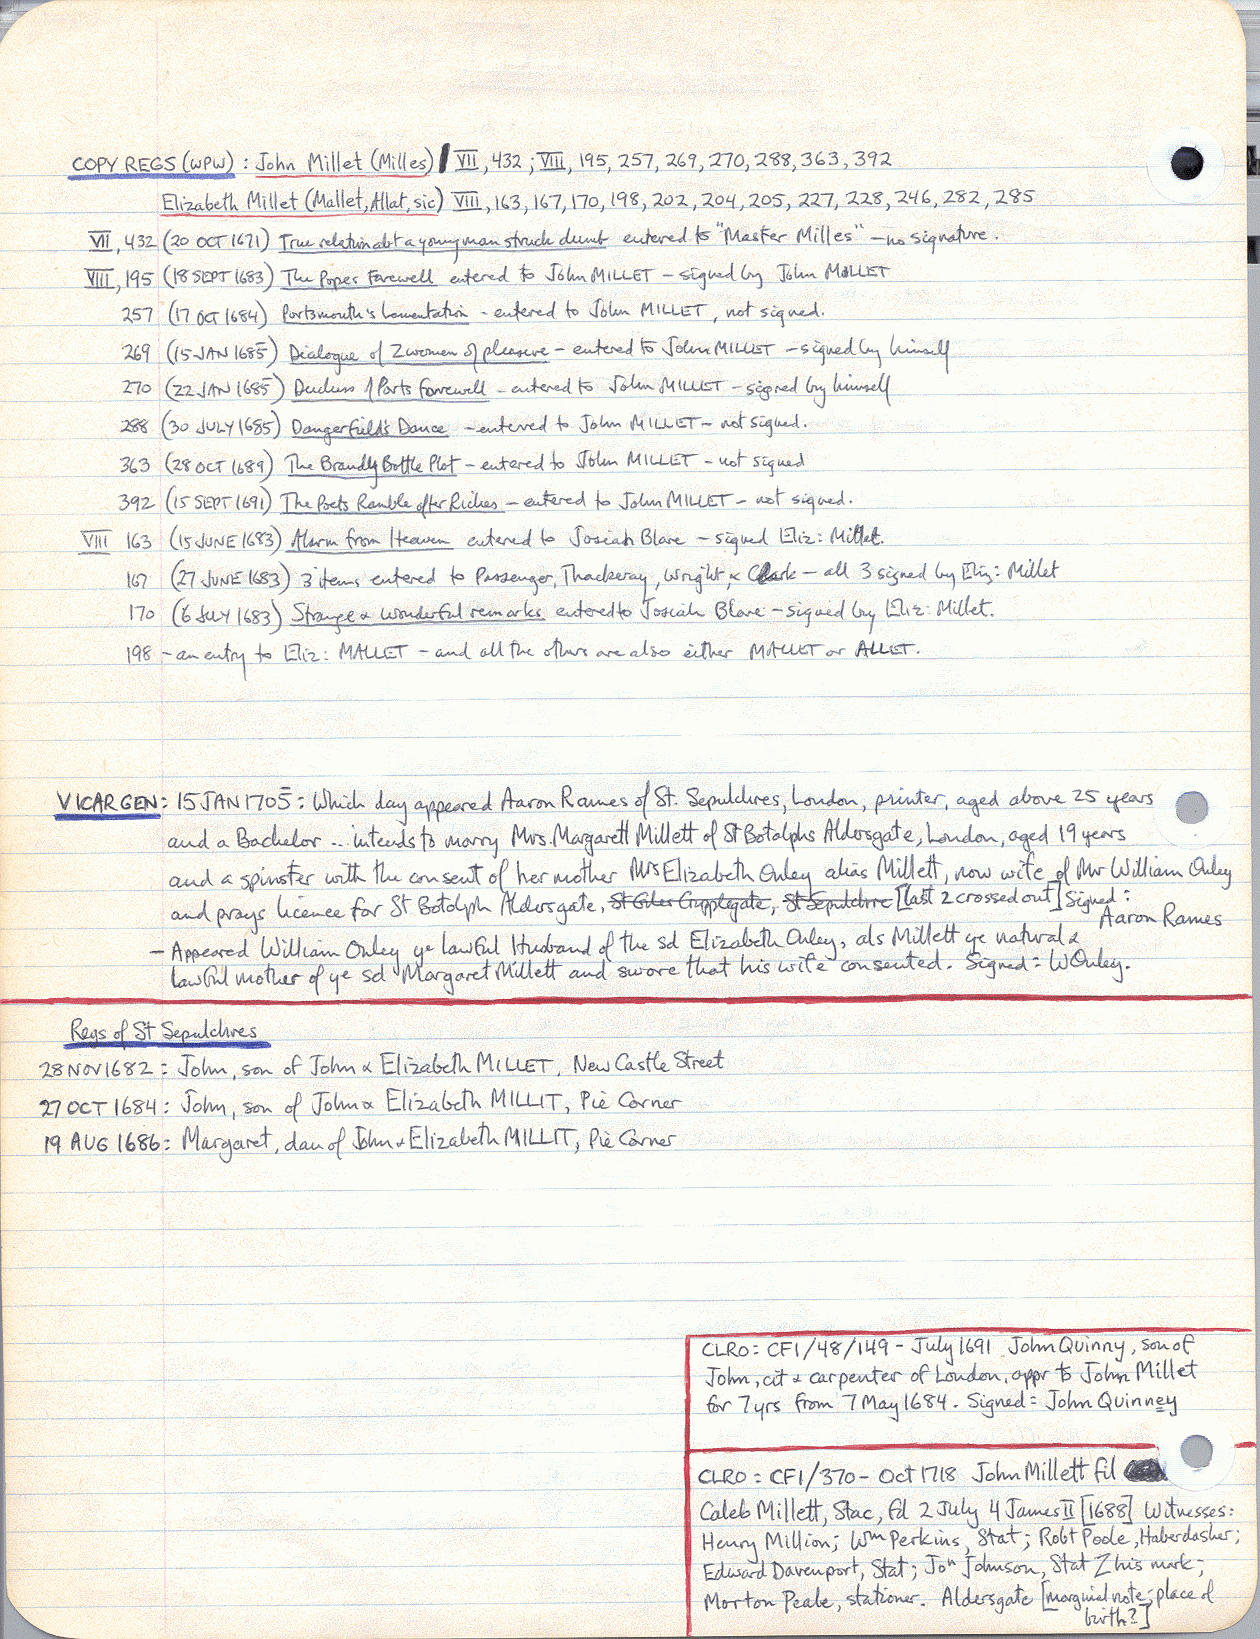 COPY REGS (WPW) : John Millet (Milles) VII, 432 ; VIII, 195, 257, 269, 270, 288, 363, 392
Elizabeth Millet (Mallet, Allat, sic) VIII, 163, 167, 170, 198, 202, 204, 205, 227, 228, 246, 282, 285
VII, 432 (20 OCT 1671) True relation abt a young man struck dumb entered to "Master Milles" – no signature.
VIII, 195 (18 SEPT 1683) The Popes Farewell entered to John MILLET – signed by John MALLET
257 (17 OCT 1684) Portsmouth's Lamentation – entered to John MILLET, not signed.
269 (15 JAN 1685) Dialogue of 2 women of pleasure – entered to John MILLET – signed by himself
270 (22 JAN 1685) Duchess of Ports farewell – entered to John MILLET – signed by himself
288 (30 JULY 1685) Dangerfield's Dance – entered to John MILLET – not signed.
363 (28 OCT 1689) The Brandy Bottle Plot – entered to John MILLET – not signed
392 (15 SEPT 1691) The Poets Ramble after Riches – entered to John MILLET – not signed.
VIII 163 (15 JUNE 1683) Alarm from Heaven entered to Josiah Blare – signed Eliz: Millet.
167 (27 JUNE 1683) 3 items entered to Passenger, Thackeray, Wright, & Clark – all 3 signed by Eliz: Millet
170 (6 JULY 1683) Strange & wonderful remarks entered to Josiah Blare – signed by Eliz: Millet.
198 – an entry to Eliz: MALLET – and all the others are also either MALLET or ALLET.
VICAR GEN: 15 JAN 1705: Which day appeared Aaron Rames of St. Sepulchres, London, printer, aged above 25 years
and a Bachelor ... intends to marry Mrs. Margarett Millett of St Botolphs Aldersgate, London, aged 19 years
and a spinster with the consent of her mother Mrs Elizabeth Onley alias Millett, now wife of Mr William Onley
and prays licence for St Botolph Aldersgate, St Giles Cripplegate, St Sepulchre [last 2 crossed out] Signed:
Aaron Rames
– Appeared William Onley ye lawful Husband of the sd Elizabeth Onley, als Millett ye natural &
lawful mother of ye sd Margaret Millett and swore that his wife consented. Signed: W Onley.
Regs of St Sepulchres
28 NOV 1682: John, son of John & Elizabeth MILLET, New Castle Street
27 OCT 1684: John, son of John & Elizabeth MILLIT, Pie Corner
19 AUG 1686: Margaret, dau of John & Elizabeth MILLIT, Pie Corner
CLRO: CF1/48/149 – July 1691 John Quinny, son of
John, cit & carpenter of London, appr to John Millet
for 7 yrs from 7 May 1684. Signed: John Quinney
CLRO: CF1/370 – Oct 1718 John Millett fil
Caleb Millett, Stac, fd 2 July 4 James II [1688] Witnesses:
Henry Million; Wm Perkins, Stat; Robt Poole, Haberdasher;
Edward Davenport, Stat; Jon Johnson, Stat Z his mark;
Morton Peale, stationer. Aldersgate [marginal note; place of
birth?]